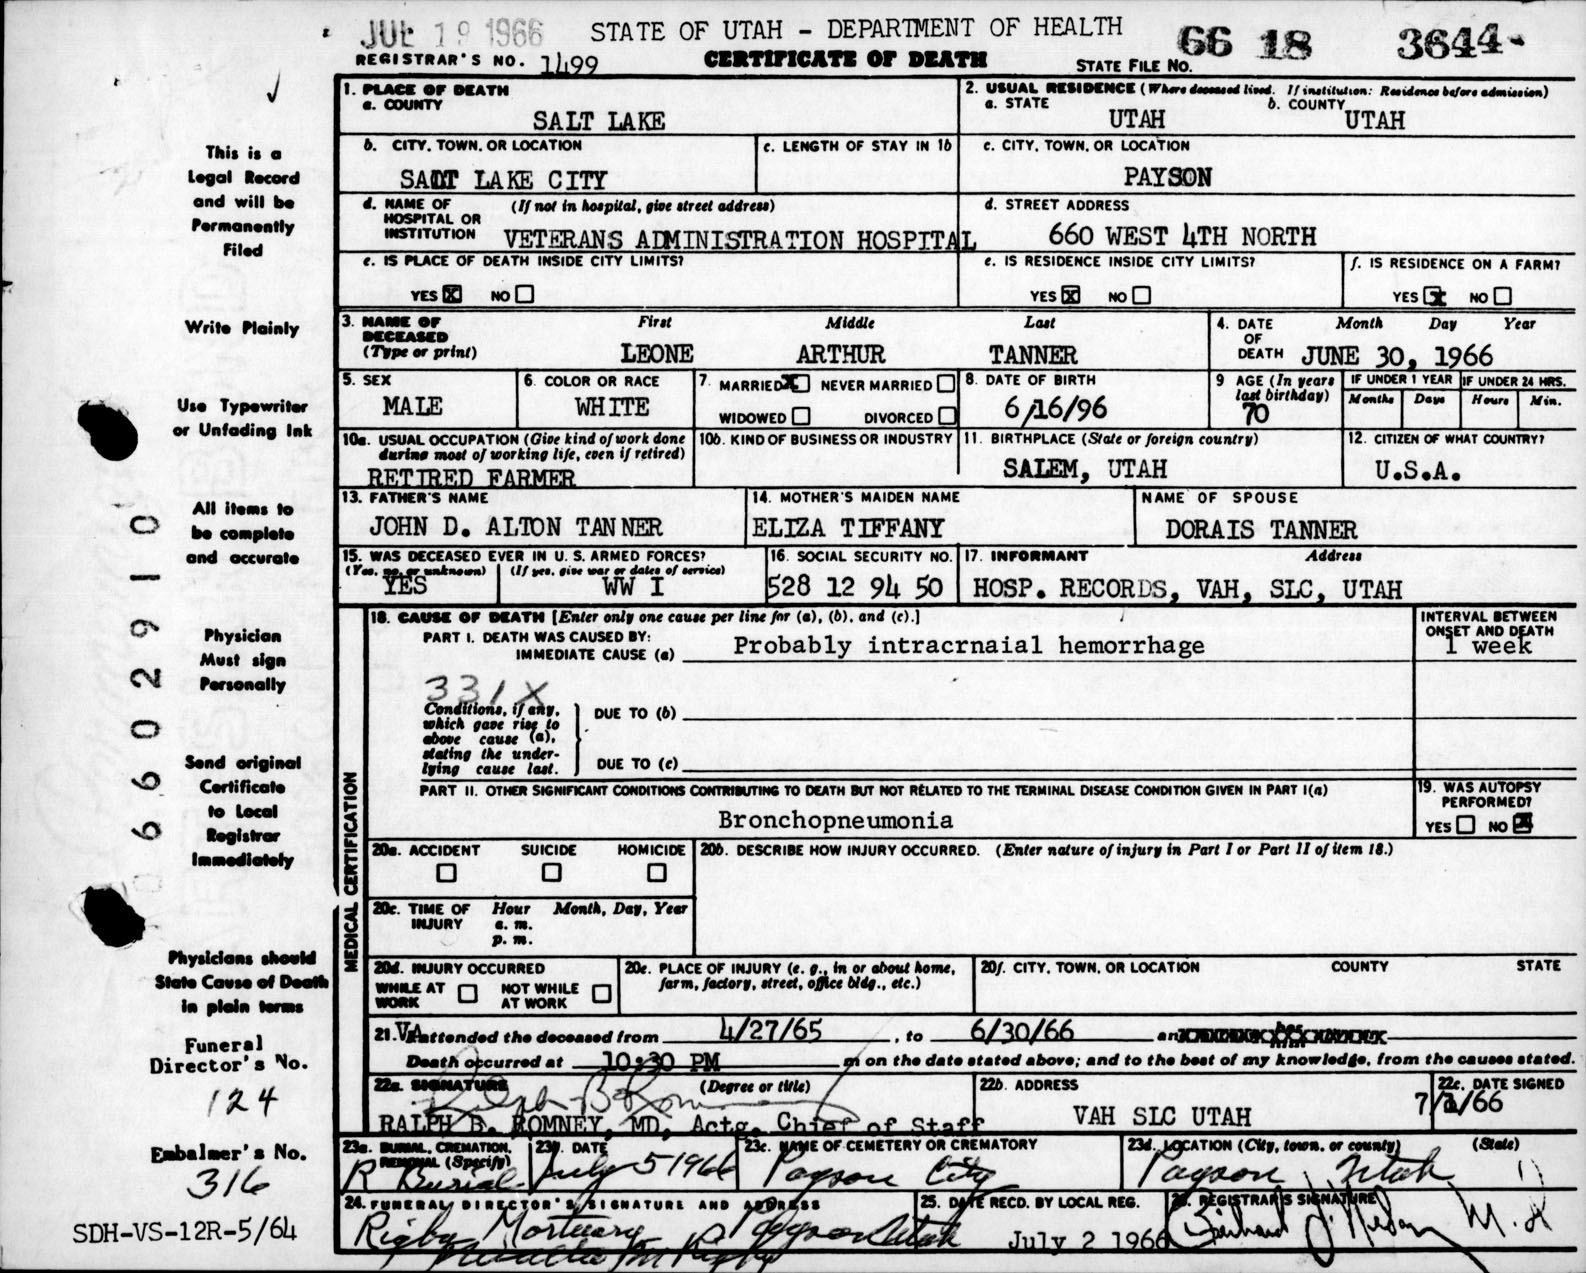 JUL 19 1966 STATE OF UTAH – DEPARTMENT OF HEALTH 66 18 3644-
REGISTRAR'S NO. 1499 CERTIFICATE OF DEATH STATE FILE NO.
1. PLACE OF DEATH
a. COUNTY
SALT LAKE
2. USUAL RESIDENCE (Where deceased lived. If institution: Residence before admission)
a. STATE b. COUNTY
UTAH UTAH
b. CITY, TOWN, OR LOCATION
SALT LAKE CITY
c. LENGTH OF STAY IN 1b
c. CITY, TOWN, OR LOCATION
PAYSON
d. NAME OF HOSPITAL OR INSTITUTION (If not in hospital, give street address)
VETERANS ADMINISTRATION HOSPITAL
d. STREET ADDRESS
660 WEST 4TH NORTH
e. IS PLACE OF DEATH INSIDE CITY LIMITS?
YES X NO
e. IS RESIDENCE INSIDE CITY LIMITS?
YES X NO
f. IS RESIDENCE ON A FARM?
YES X NO
3. NAME OF DECEASED (Type or print)
First Middle Last
LEONE ARTHUR TANNER
4. DATE OF DEATH Month Day Year
JUNE 30, 1966
5. SEX
MALE
6. COLOR OR RACE
WHITE
7. MARRIED X NEVER MARRIED
WIDOWED DIVORCED
8. DATE OF BIRTH
6/16/96
9 AGE (In years last birthday)
70
IF UNDER 1 YEAR IF UNDER 24 HRS.
Months Days Hours Min.
10a. USUAL OCCUPATION (Give kind of work done during most of working life, even if retired)
RETIRED FARMER
10b. KIND OF BUSINESS OR INDUSTRY
11. BIRTHPLACE (State or foreign country)
SALEM, UTAH
12. CITIZEN OF WHAT COUNTRY?
U.S.A.
13. FATHER'S NAME
JOHN D. ALTON TANNER
14. MOTHER'S MAIDEN NAME
ELIZA TIFFANY
NAME OF SPOUSE
DORAIS TANNER
15. WAS DECEASED EVER IN U. S. ARMED FORCES?
(Yes, no, or unknown) (If yes, give war or dates of service)
YES WW I
16. SOCIAL SECURITY NO.
528 12 94 50
17. INFORMANT Address
HOSP. RECORDS, VAH, SLC, UTAH
MEDICAL CERTIFICATION
18. CAUSE OF DEATH [Enter only one cause per line for (a), (b), and (c).]
PART I. DEATH WAS CAUSED BY:
IMMEDIATE CAUSE (a) Probably intracrnaial hemorrhage
INTERVAL BETWEEN ONSET AND DEATH
1 week
331X
Conditions, if any, which gave rise to above cause (a), stating the underlying cause last.
DUE TO (b)
DUE TO (c)
PART II. OTHER SIGNIFICANT CONDITIONS CONTRIBUTING TO DEATH BUT NOT RELATED TO THE TERMINAL DISEASE CONDITION GIVEN IN PART I(a)
Bronchopneumonia
19. WAS AUTOPSY PERFORMED?
YES NO X
20a. ACCIDENT SUICIDE HOMICIDE
20b. DESCRIBE HOW INJURY OCCURRED. (Enter nature of injury in Part I or Part II of item 18.)
20c. TIME OF INJURY Hour Month, Day, Year
a. m.
p. m.
20d. INJURY OCCURRED
WHILE AT WORK NOT WHILE AT WORK
20e. PLACE OF INJURY (e. g., in or about home, farm, factory, street, office bldg., etc.)
20f. CITY, TOWN, OR LOCATION COUNTY STATE
21. VA attended the deceased from 4/27/65, to 6/30/66 an
Death occurred at 10:30 PM m on the date stated above; and to the best of my knowledge, from the causes stated.
22a. SIGNATURE (Degree or title)
Ralph B Romney
RALPH B. ROMNEY, MD, Actg. Chief of Staff
22b. ADDRESS
VAH SLC UTAH
22c. DATE SIGNED
7/1/66
23a. BURIAL, CREMATION, REMOVAL (Specify)
R Burial
23b. DATE
July 5 1966
23c. NAME OF CEMETERY OR CREMATORY
Payson City
23d. LOCATION (City, town, or county) (State)
Payson Utah
24. FUNERAL DIRECTOR'S SIGNATURE AND ADDRESS
Rigby Mortuary Payson Utah
25. DATE RECD. BY LOCAL REG.
July 2 1966
26. REGISTRAR'S SIGNATURE
This is a
Legal Record
and will be
Permanently
Filed
Write Plainly
Use Typewriter
or Unfading Ink
All items to
be complete
and accurate
Physician
Must sign
Personally
Send original
Certificate
to Local
Registrar
Immediately
Physicians should
State Cause of Death
in plain terms
Funeral
Director's No.
124
Embalmer's No.
316
SDH-VS-12R-5/64
6602910